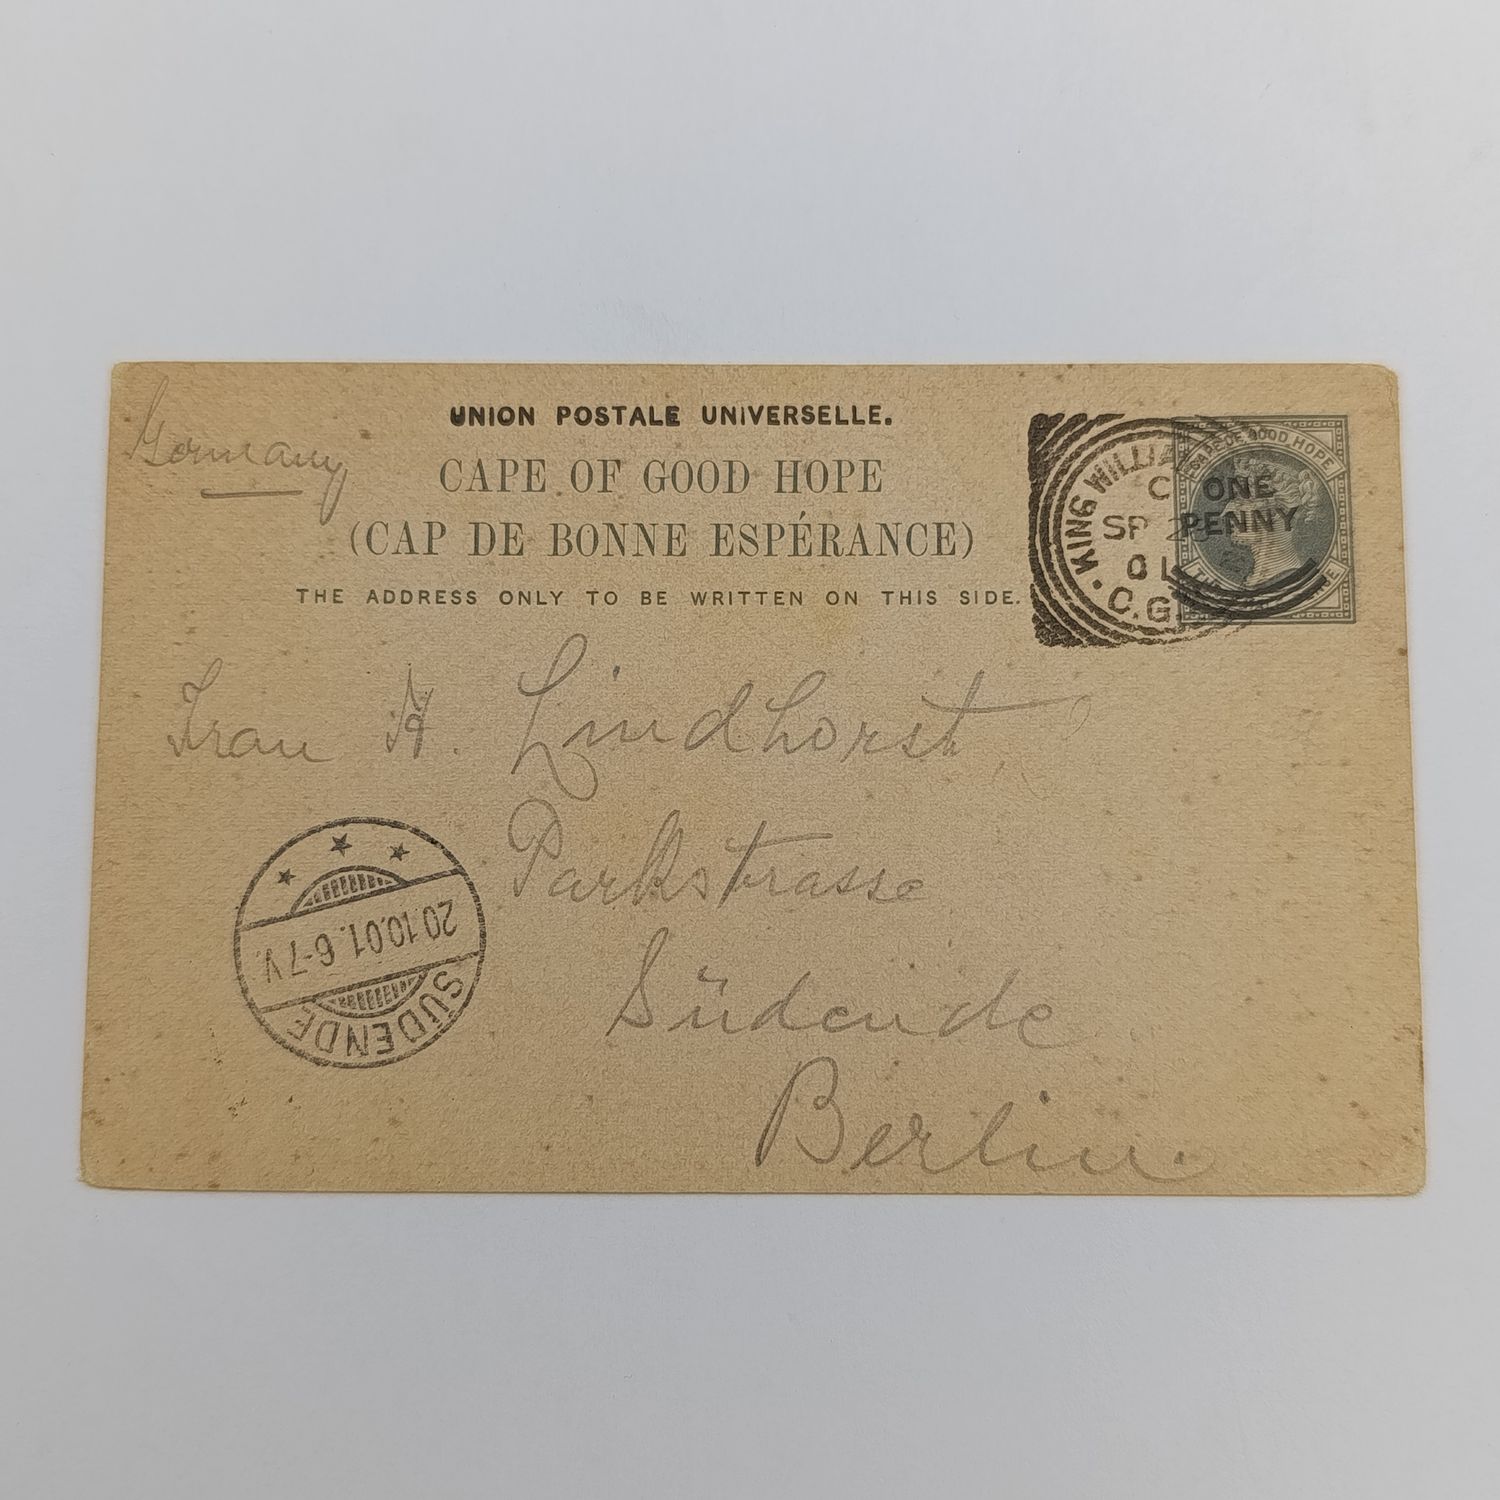 Germany
UNION POSTALE UNIVERSELLE.
CAPE OF GOOD HOPE
(CAP DE BONNE ESPÉRANCE)
THE ADDRESS ONLY TO BE WRITTEN ON THIS SIDE.
KING WILLIA
C
SP 2
01
C.G.
CAPE OF GOOD HOPE
ONE
PENNY
Frau A. Lindhorst,
Parkstrasse
Südende
Berlin.
20.10.01.6-7V.
SÜDENDE